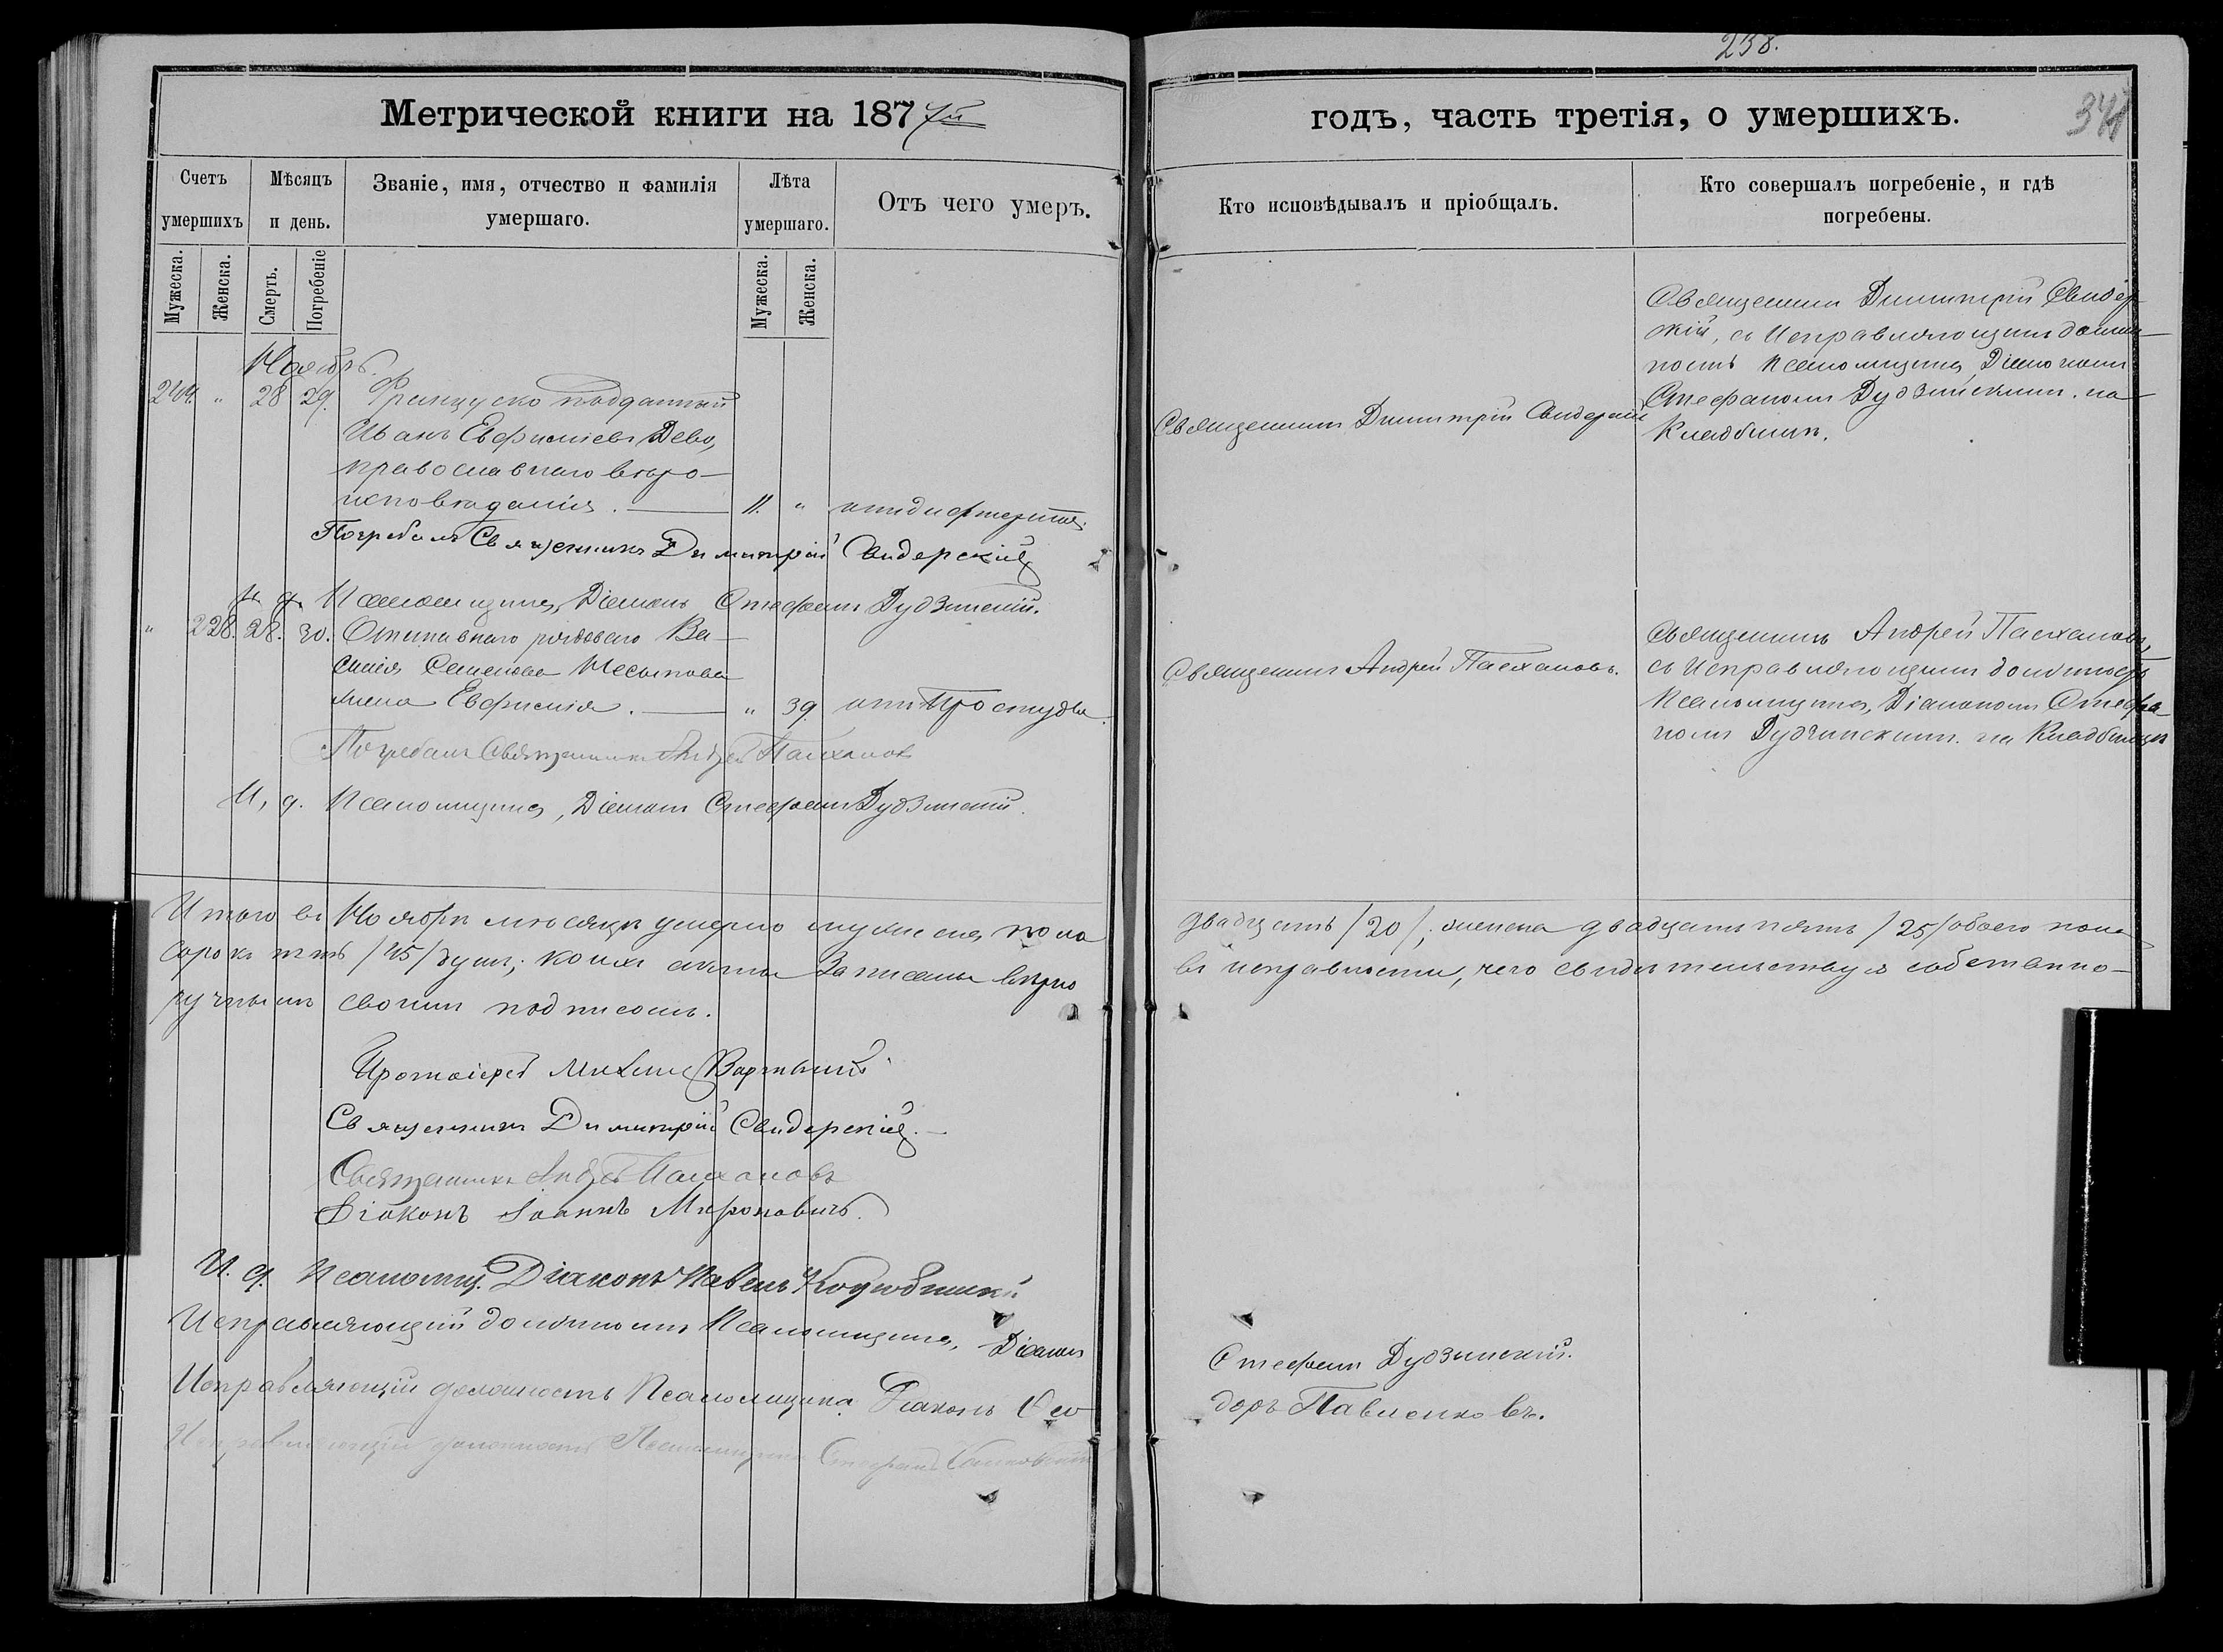 238.
Метрической книги на 1877й
годъ, часть третія, о умершихъ.
341
Счетъ умершихъ
Мѣсяцъ и день.
Званіе, имя, отчество и фамилія умершаго.
Лѣта умершаго.
Отъ чего умеръ.
Кто исповѣдывалъ и пріобщалъ.
Кто совершалъ погребеніе, и гдѣ погребены.
Мужеска.
Женска.
Смерть.
Погребеніе
Мужеска.
Женска.
Ноябрь.
" 28 29. Французско подданный
Иванъ Евфиміевъ Дево,
православнаго вѣро-
исповѣданія. 11. " отъ дифтерита.
Священникъ Димитрій Свидерскій
Священникъ Димитрій Свидер-
скій, съ Исправляющимъ долж-
ность Псаломщика, Діакономъ
Стефаномъ Дудзинскимъ. на
Кладбищѣ.
Погребалъ Священникъ Димитрій Свидерскій
И. д. Псаломщика, Діаконъ Стефанъ Дудзинскій.
" 228. 28. 30. Отставнаго рядоваго Ва-
силія Семенова
жена Евфимія. " 39 отъ Простуды.
Священникъ Андрей Пасхаловъ.
Священникъ Андрей Пасхаловъ,
съ Исправляющимъ должность
Псаломщика, Діакономъ Стефа-
номъ Дудзинскимъ. на Кладбищѣ
Погребалъ Священникъ Андрей Пасхаловъ
И. д. Псаломщика, Діаконъ Стефанъ Дудзинскій.
Итого въ Ноябрѣ мѣсяцѣ умерло мужеска пола двадцать /20/; женска двадцать пять /25/ обоего пола
сорокъ пять /45/ душъ; коихъ акты Записаны вѣрно въ исправности, чего свидѣтельствуя собственно-
ручнымъ своимъ подписомъ.
Протоіерей Михаилъ
Священникъ Димитрій Свидерскій.
Священникъ Андрей Пасхаловъ
Діаконъ Іоаннъ Мироновичъ.
И. д. Псаломщ. Діаконъ Павелъ
Исправляющій должность Псаломщика, Діаконъ Стефанъ Дудзинскій.
Исправляющій должность Псаломщика Діаконъ Ѳео-
доръ Павленковъ.
Исправляющій должность Псаломщика Стефанъ